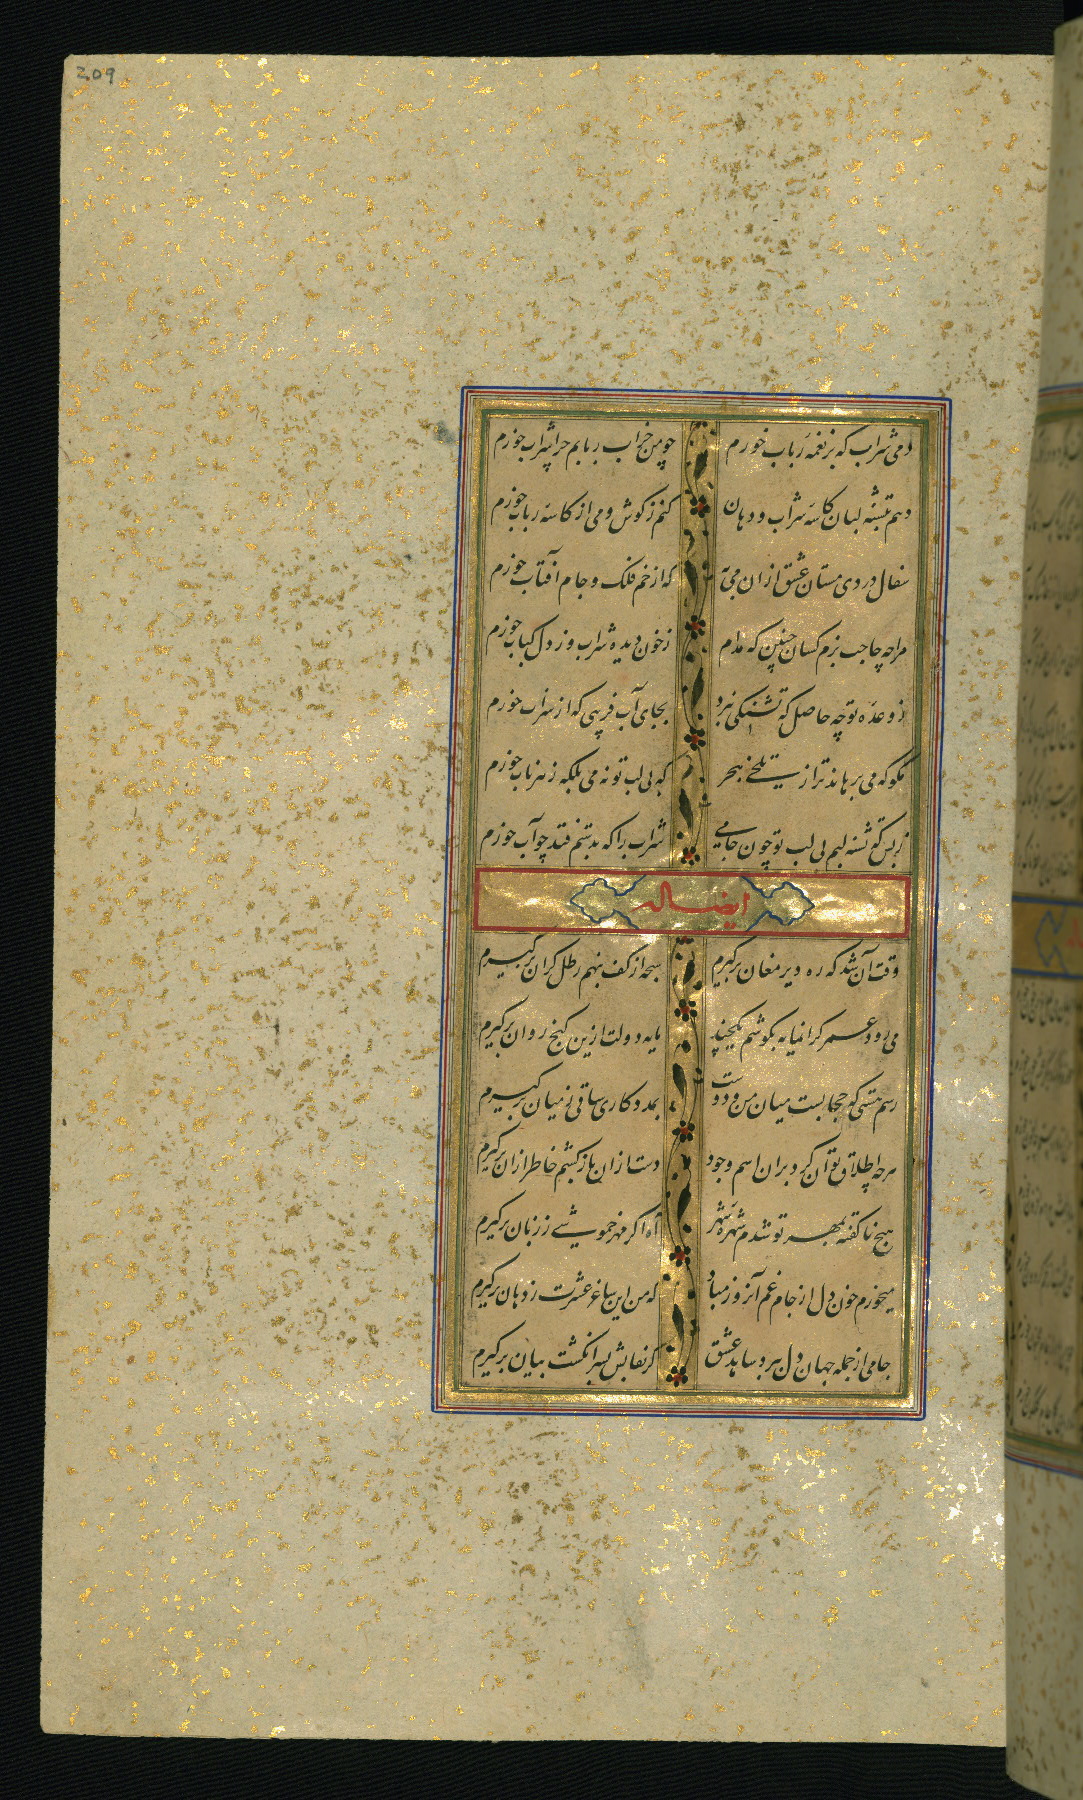 209
دمی شراب که بر نغمه رباب خورم چو من خراب ربابم چرا شراب خورم
دهم بتشنه لبان کاسه شراب و دهان کنم ز کوش و می از کاسه رباب خورم
سفال دردی مستان عشق ازان می که از خم فلک و جام آفتاب خورم
مرا چه حاجت بزم کسان چنین که مدام ز خون دیده شراب و ز دل کباب خورم
ز وعده تو چه حاصل که تشنکی نبرد بجای آب فریبی که از سراب خورم
مکو که می برهاند ترا ز تلخی هجر که بی لب تو نه می بلکه زهر ناب خورم
ز بس که تشنه لبم بی لب تو چون جامی شراب را که بدستم فتد چو آب خورم
ایضا له
وقت آن شد که ره دیر مغان برکیرم سبحه از کف بنهم رطل کران برکیرم
می رود عمر کرانمایه بکوشم یکچند مایه دولت ازین کنج روان برکیرم
رسم هستی که حجابست میان من و دوست بمددکاری ساقی ز میان برکیرم
هرچه اطلاق توان کرد بران اسم وجود دست ازان باز کشم خاطر ازان برکیرم
هیچ ناکفته بمهر تو شدم شهره شهر آه اکر مهر خموشی ز زبان برکیرم
میخورم خون دل از جام غم آنروز مباد که من این ساغر عشرت ز دهان برکیرم
جامی از جمله جهان دل ببرد شاهد عشق کر نقابش بسر انکشت بیان برکیرم